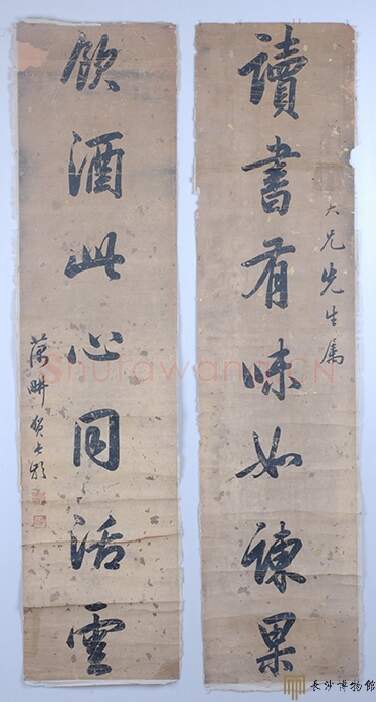 讀書有味如諫果
大兄先生属
飲酒此心同活雲
藕畊賀長齡
Shufawang.CN
長沙博物館